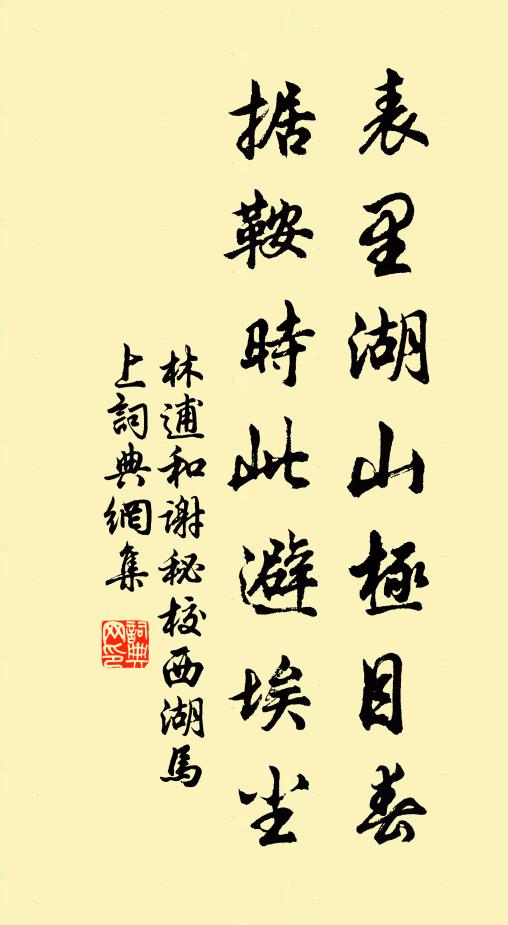 表里湖山極目春
据鞍時此避埃尘
林逋和谢秘校西湖馬
上詞典網集
詞典
网印